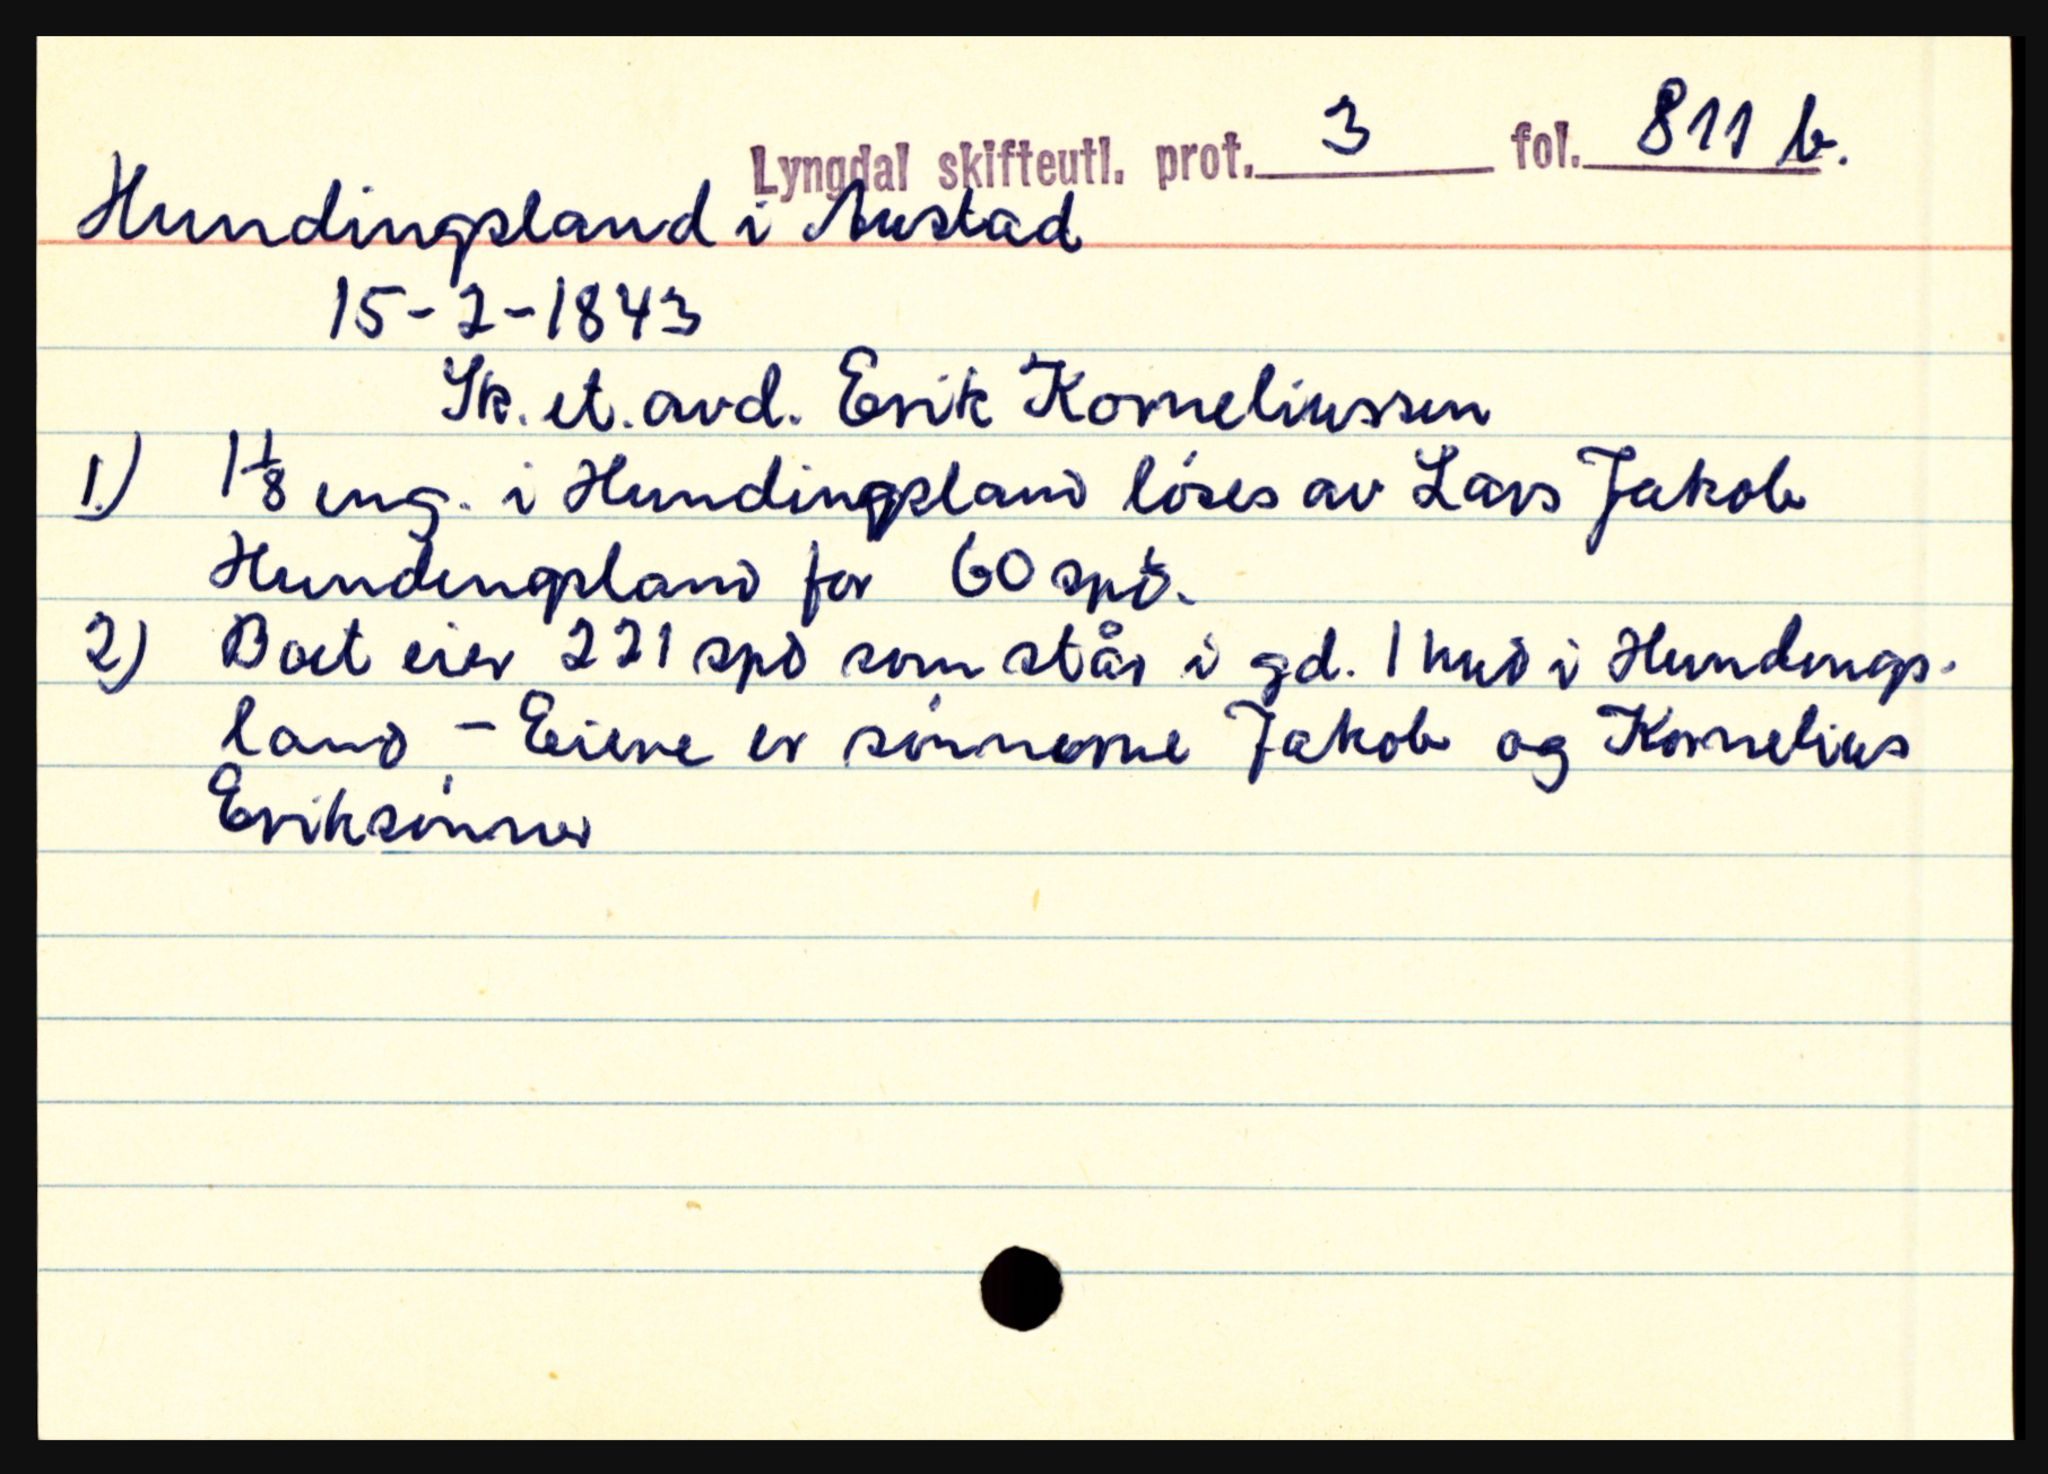 Lyngdal skifteutl. prot. 3 fol. 811 b.
Hundingsland i Austad
15-2-1843
Sk. et. avd. Erik Korneliussen
1.) 1 1/8 eng. i Hundingsland løses av Lars Jakob
Hundingsland for 60 spd.
2) Boet eier 221 spd som står i gd. 1 hud i Hundings-
land - Eiere er sønnerne Jakob og Kornelius
Eriksønner